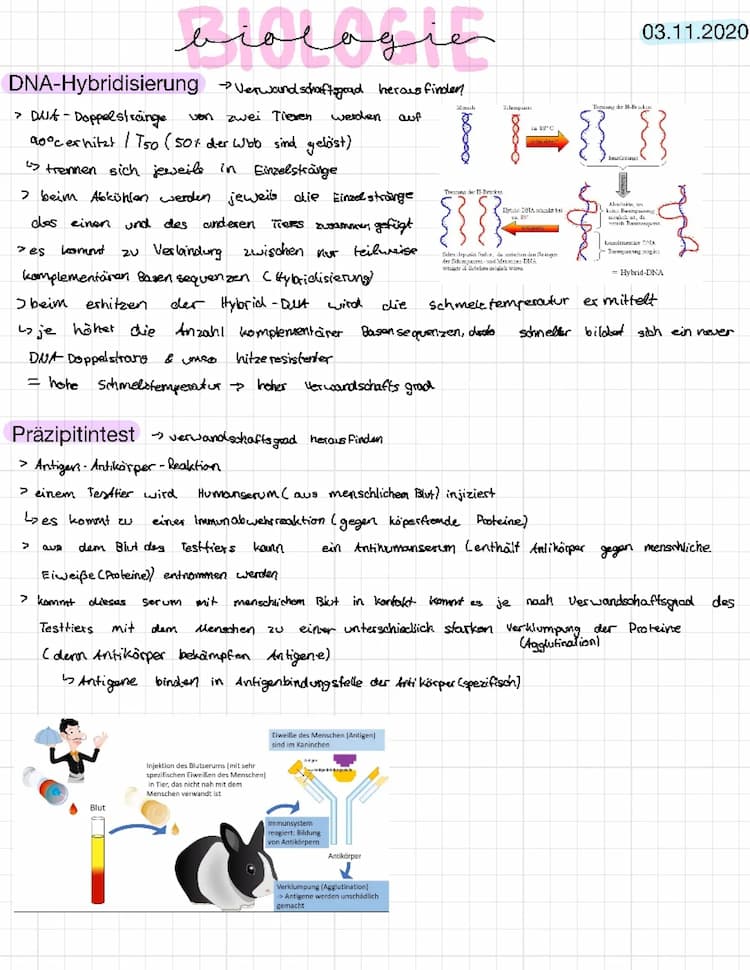 BIOLOGIE
biologie
03.11.2020
DNA-Hybridisierung → Verwandschaftsgrad herausfinden
> DNA-Doppelstränge von zwei Tieren werden auf
90°C erhitzt / T50 (50% der Wbb sind gelöst)
↳ trennen sich jeweils in Einzelstränge
> beim Abkühlen werden jeweils die Einzelstränge
des einen und des anderen Tiers zusammengefügt
> es kommt zu Verbindung zwischen nur teilweise
komplementären Basensequenzen (Hybridisierung)
> beim erhitzen der Hybrid-DNA wird die schmelztemperatur ermittelt
↳ je höher die Anzahl komplementärer Basensequenzen, desto schneller bildet sich ein neuer
DNA-Doppelstrang & umso hitzeresistenter
= hohe Schmelztemperatur → hoher Verwandschaftsgrad
Mensch
Schimpanse
Trennung der H-Brücken
ca. 85°C
Einzelstränge
Trennung der H-Brücken
Hybrid-DNA schmilzt bei
= Hybrid-DNA
Präzipitintest → verwandschaftsgrad herausfinden
> Antigen-Antikörper-Reaktion
> einem Testtier wird Humanserum (aus menschlichem Blut) injiziert
↳ es kommt zu einer Immunabwehrreaktion (gegen köperfremde Proteine)
> aus dem Blut des Testtiers kann ein Antihumanserum (enthält Antikörper gegen menschliche
Eiweiße (Proteine)) entnommen werden
> kommt dieses Serum mit menschlichem Blut in kontakt kommt es je nach Verwandschaftsgrad des
Testtiers mit dem Menschen zu einer unterschiedlich starken Verklumpung der Proteine
(Agglutination)
(denn Antikörper bekämpfen Antigene)
↳ Antigene binden in Antigenbindungsstelle der Antikörper (spezifisch)
Eiweiße des Menschen (Antigen)
sind im Kaninchen
Injektion des Blutserums (mit sehr
spezifischen Eiweißen des Menschen)
in Tier, das nicht nah mit dem
Menschen verwandt ist
Blut
Immunsystem
reagiert: Bildung
von Antikörpern
Antikörper
Verklumpung (Agglutination)
-> Antigene werden unschädlich
gemacht